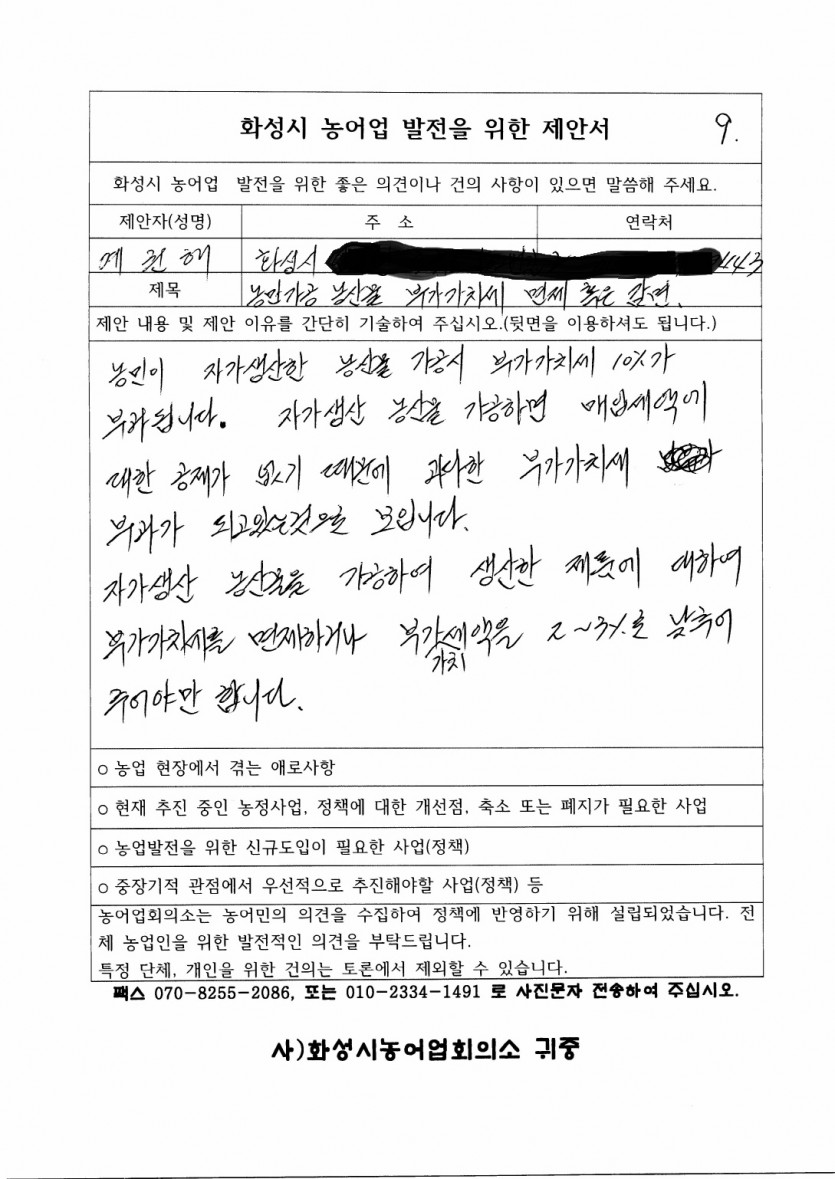 화성시 농어업 발전을 위한 제안서 9.
화성시 농어업 발전을 위한 좋은 의견이나 건의 사항이 있으면 말씀해 주세요.
제안자(성명) 주 소 연락처
계 권 해 화성시
제목 농민가공 농산물 부가가치세 면제 혹은 감면.
제안 내용 및 제안 이유를 간단히 기술하여 주십시오.(뒷면을 이용하셔도 됩니다.)
농민이 자가생산한 농산물 가공시 부가가치세 10%가
부과됩니다. 자가생산 농산물 가공하면 매입세액에
대한 공제가 없기 때문에 과다한 부가가치세
부과가 되고있는것으로 보입니다.
자가생산 농산물을 가공하여 생산한 제품에 대하여
부가가치세를 면제하거나 부가가치세액을 2~3%로 낮추어
주어야만 합니다.
○ 농업 현장에서 겪는 애로사항
○ 현재 추진 중인 농정사업, 정책에 대한 개선점, 축소 또는 폐지가 필요한 사업
○ 농업발전을 위한 신규도입이 필요한 사업(정책)
○ 중장기적 관점에서 우선적으로 추진해야할 사업(정책) 등
농어업회의소는 농어민의 의견을 수집하여 정책에 반영하기 위해 설립되었습니다. 전
체 농업인을 위한 발전적인 의견을 부탁드립니다.
특정 단체, 개인을 위한 건의는 토론에서 제외할 수 있습니다.
팩스 070-8255-2086, 또는 010-2334-1491 로 사진문자 전송하여 주십시오.
사)화성시농어업회의소 귀중